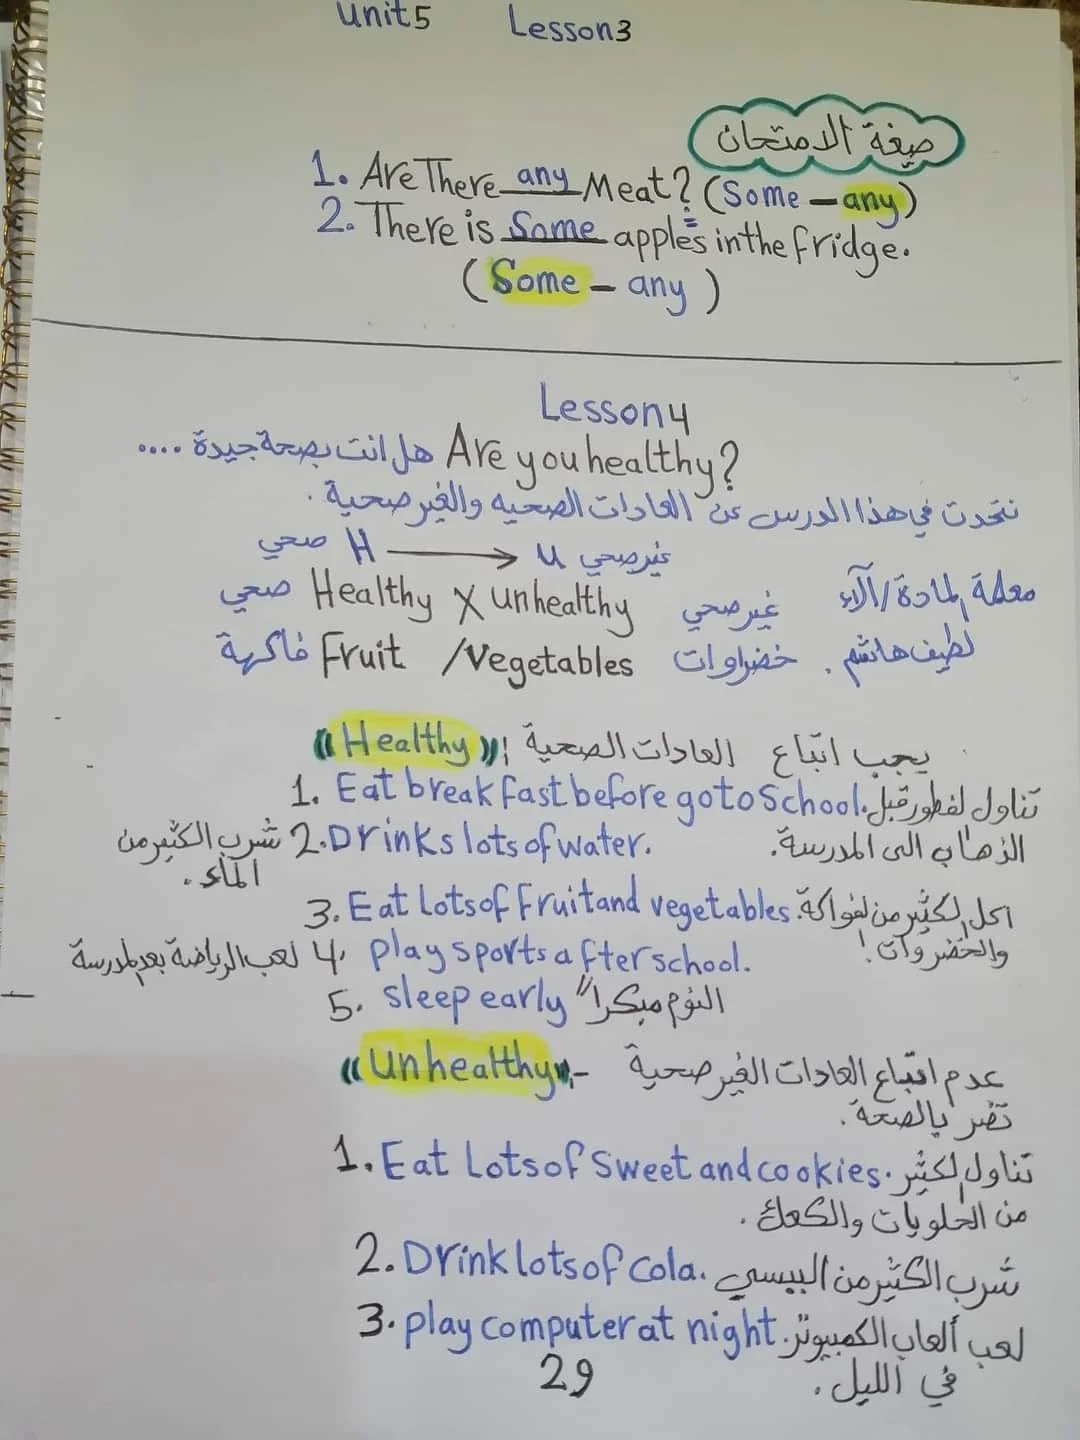 Unit5 Lesson3
صيغة الامتحان
1. Are There any Meat? (Some – any)
2. There is Some apples in the fridge.
(Some – any)
Lesson4
Are you healthy? هل انت بصحة جيدة ....
نتحدث في هذا الدرس عن العادات الصحيه والغير صحية .
صحي H → U غير صحي
صحي Healthy X unhealthy غير صحي
معلمة المادة/آلاء
فاكهة Fruit /Vegetables خضراوات
لطيف هاشم .
《Healthy》: يجب اتباع العادات الصحية
1. Eat breakfast before go to School. تناول لفطور قبل
الذهاب الى المدرسة.
2. Drinks lots of water. شرب الكثير من
الماء .
3. Eat Lots of Fruit and vegetables. اكل الكثير من لفواكة
والخضروات !
4. play sports after school. لعب الرياضة بعد المدرسة
5. sleep early النوم مبكراً
《unhealthy》:- عدم اتباع العادات الغير صحية
تضر بالصحة .
1. Eat Lots of Sweet and cookies. تناول الكثير
من الحلويات والكعك .
2. Drink lots of Cola. شرب الكثير من البيبسي
3. play computer at night. لعب ألعاب الكمبيوتر
في الليل .
29